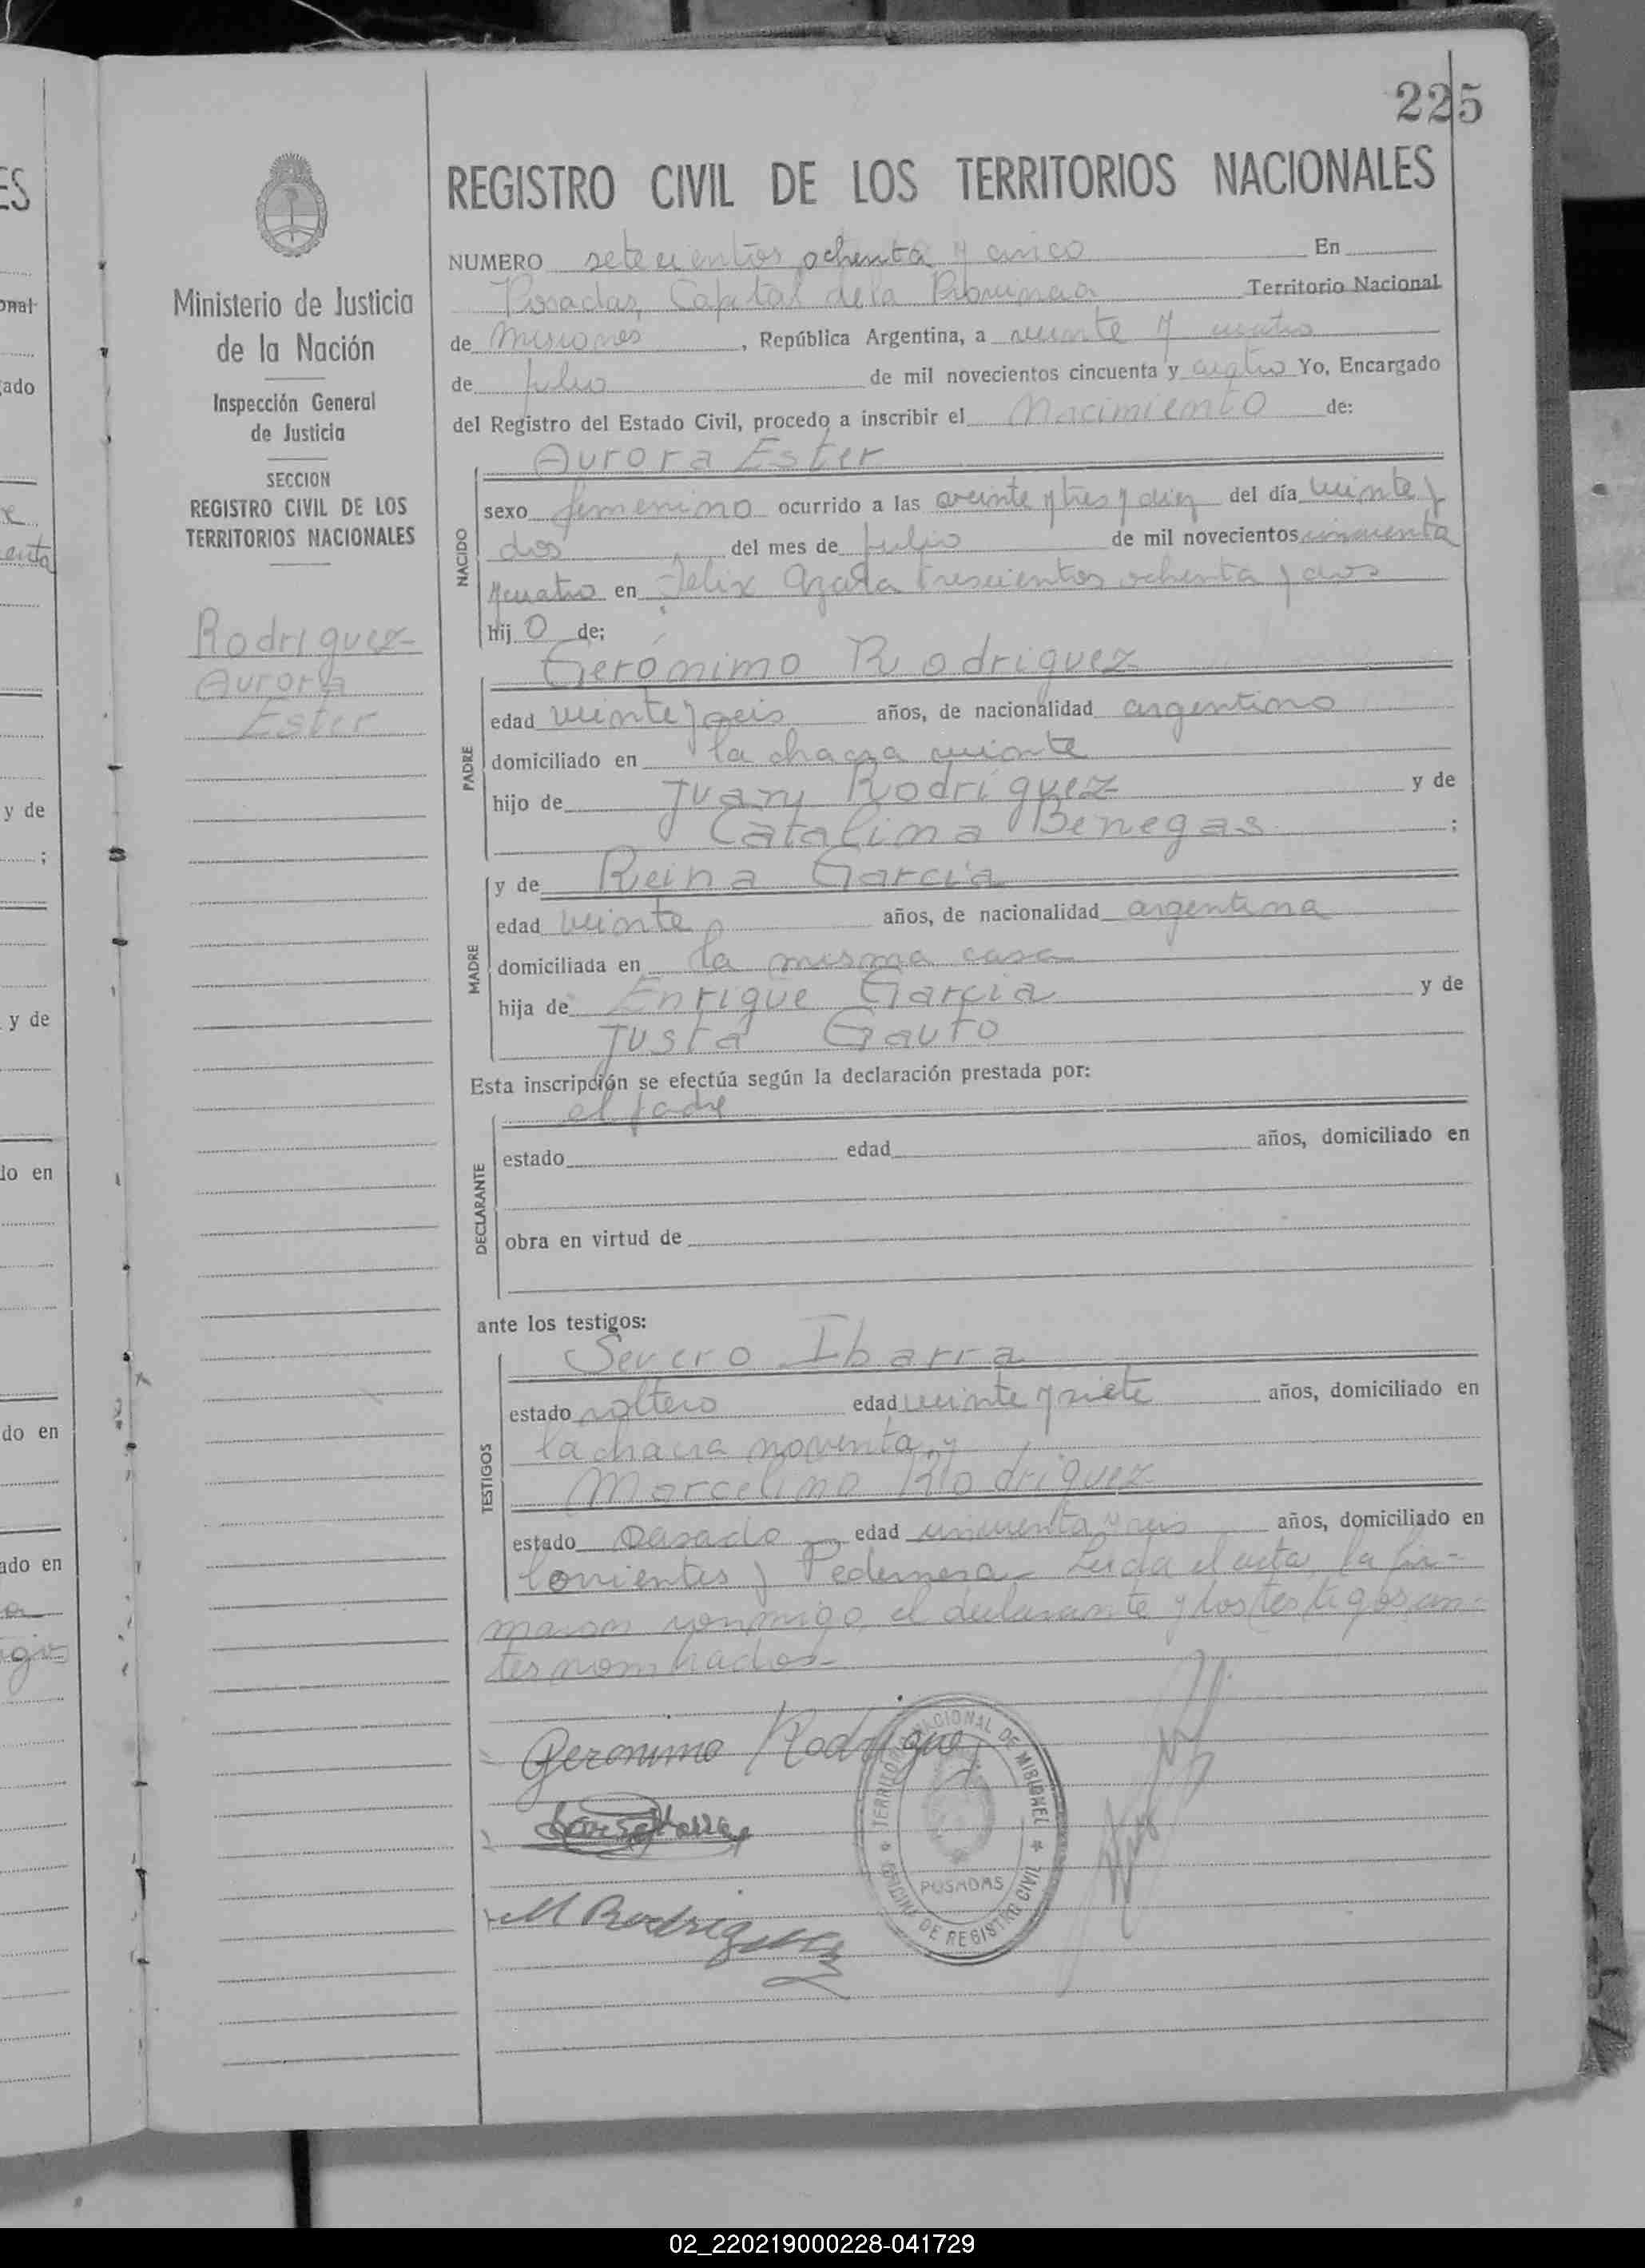 225
REGISTRO CIVIL DE LOS TERRITORIOS NACIONALES
Ministerio de Justicia
de la Nación
Inspección General
de Justicia
SECCION
REGISTRO CIVIL DE LOS
TERRITORIOS NACIONALES
Rodriguez
Aurora
Ester
NUMERO setecientos ochenta y cinco En
Posadas, Capital de la Provincia Territorio Nacional
de Misiones, República Argentina, a veinte y cuatro
de julio de mil novecientos cincuenta y cuatro Yo, Encargado
del Registro del Estado Civil, procedo a inscribir el Nacimiento de:
Aurora Ester
NACIDO
sexo femenino ocurrido a las veinte y tres y diez del día veinte y
dos del mes de julio de mil novecientos cincuenta
y cuatro en Felix Azara trescientos ochenta y dos
hij o de:
Gerónimo Rodriguez
PADRE
edad veinte y seis años, de nacionalidad argentino
domiciliado en la chacra veinte
hijo de Juan Rodríguez y de
Catalina Benegas ;
MADRE
y de Reina Garcia
edad veinte años, de nacionalidad argentina
domiciliada en la misma casa
hija de Enrique Garcia y de
Justa Gauto
Esta inscripción se efectúa según la declaración prestada por:
el padre
DECLARANTE
estado edad años, domiciliado en
obra en virtud de
ante los testigos:
Severo Ibarra
TESTIGOS
estado soltero edad veinte y siete años, domiciliado en
la chacra noventa, y
Marcelino Rodriguez
estado casado edad cincuenta y seis años, domiciliado en
Corrientes y Pedernera Leida el acta, la fir-
maron conmigo, el declarante y los testigos an-
tes nombrados
Geronimo Rodriguez
M Rodriguez
TERRITORIO NACIONAL DE MISIONES
POSADAS
OFICINA DE REGISTRO CIVIL
ES
onal
ado
enta
y de
;
y de
lo en
do en
ado en
02_220219000228-041729